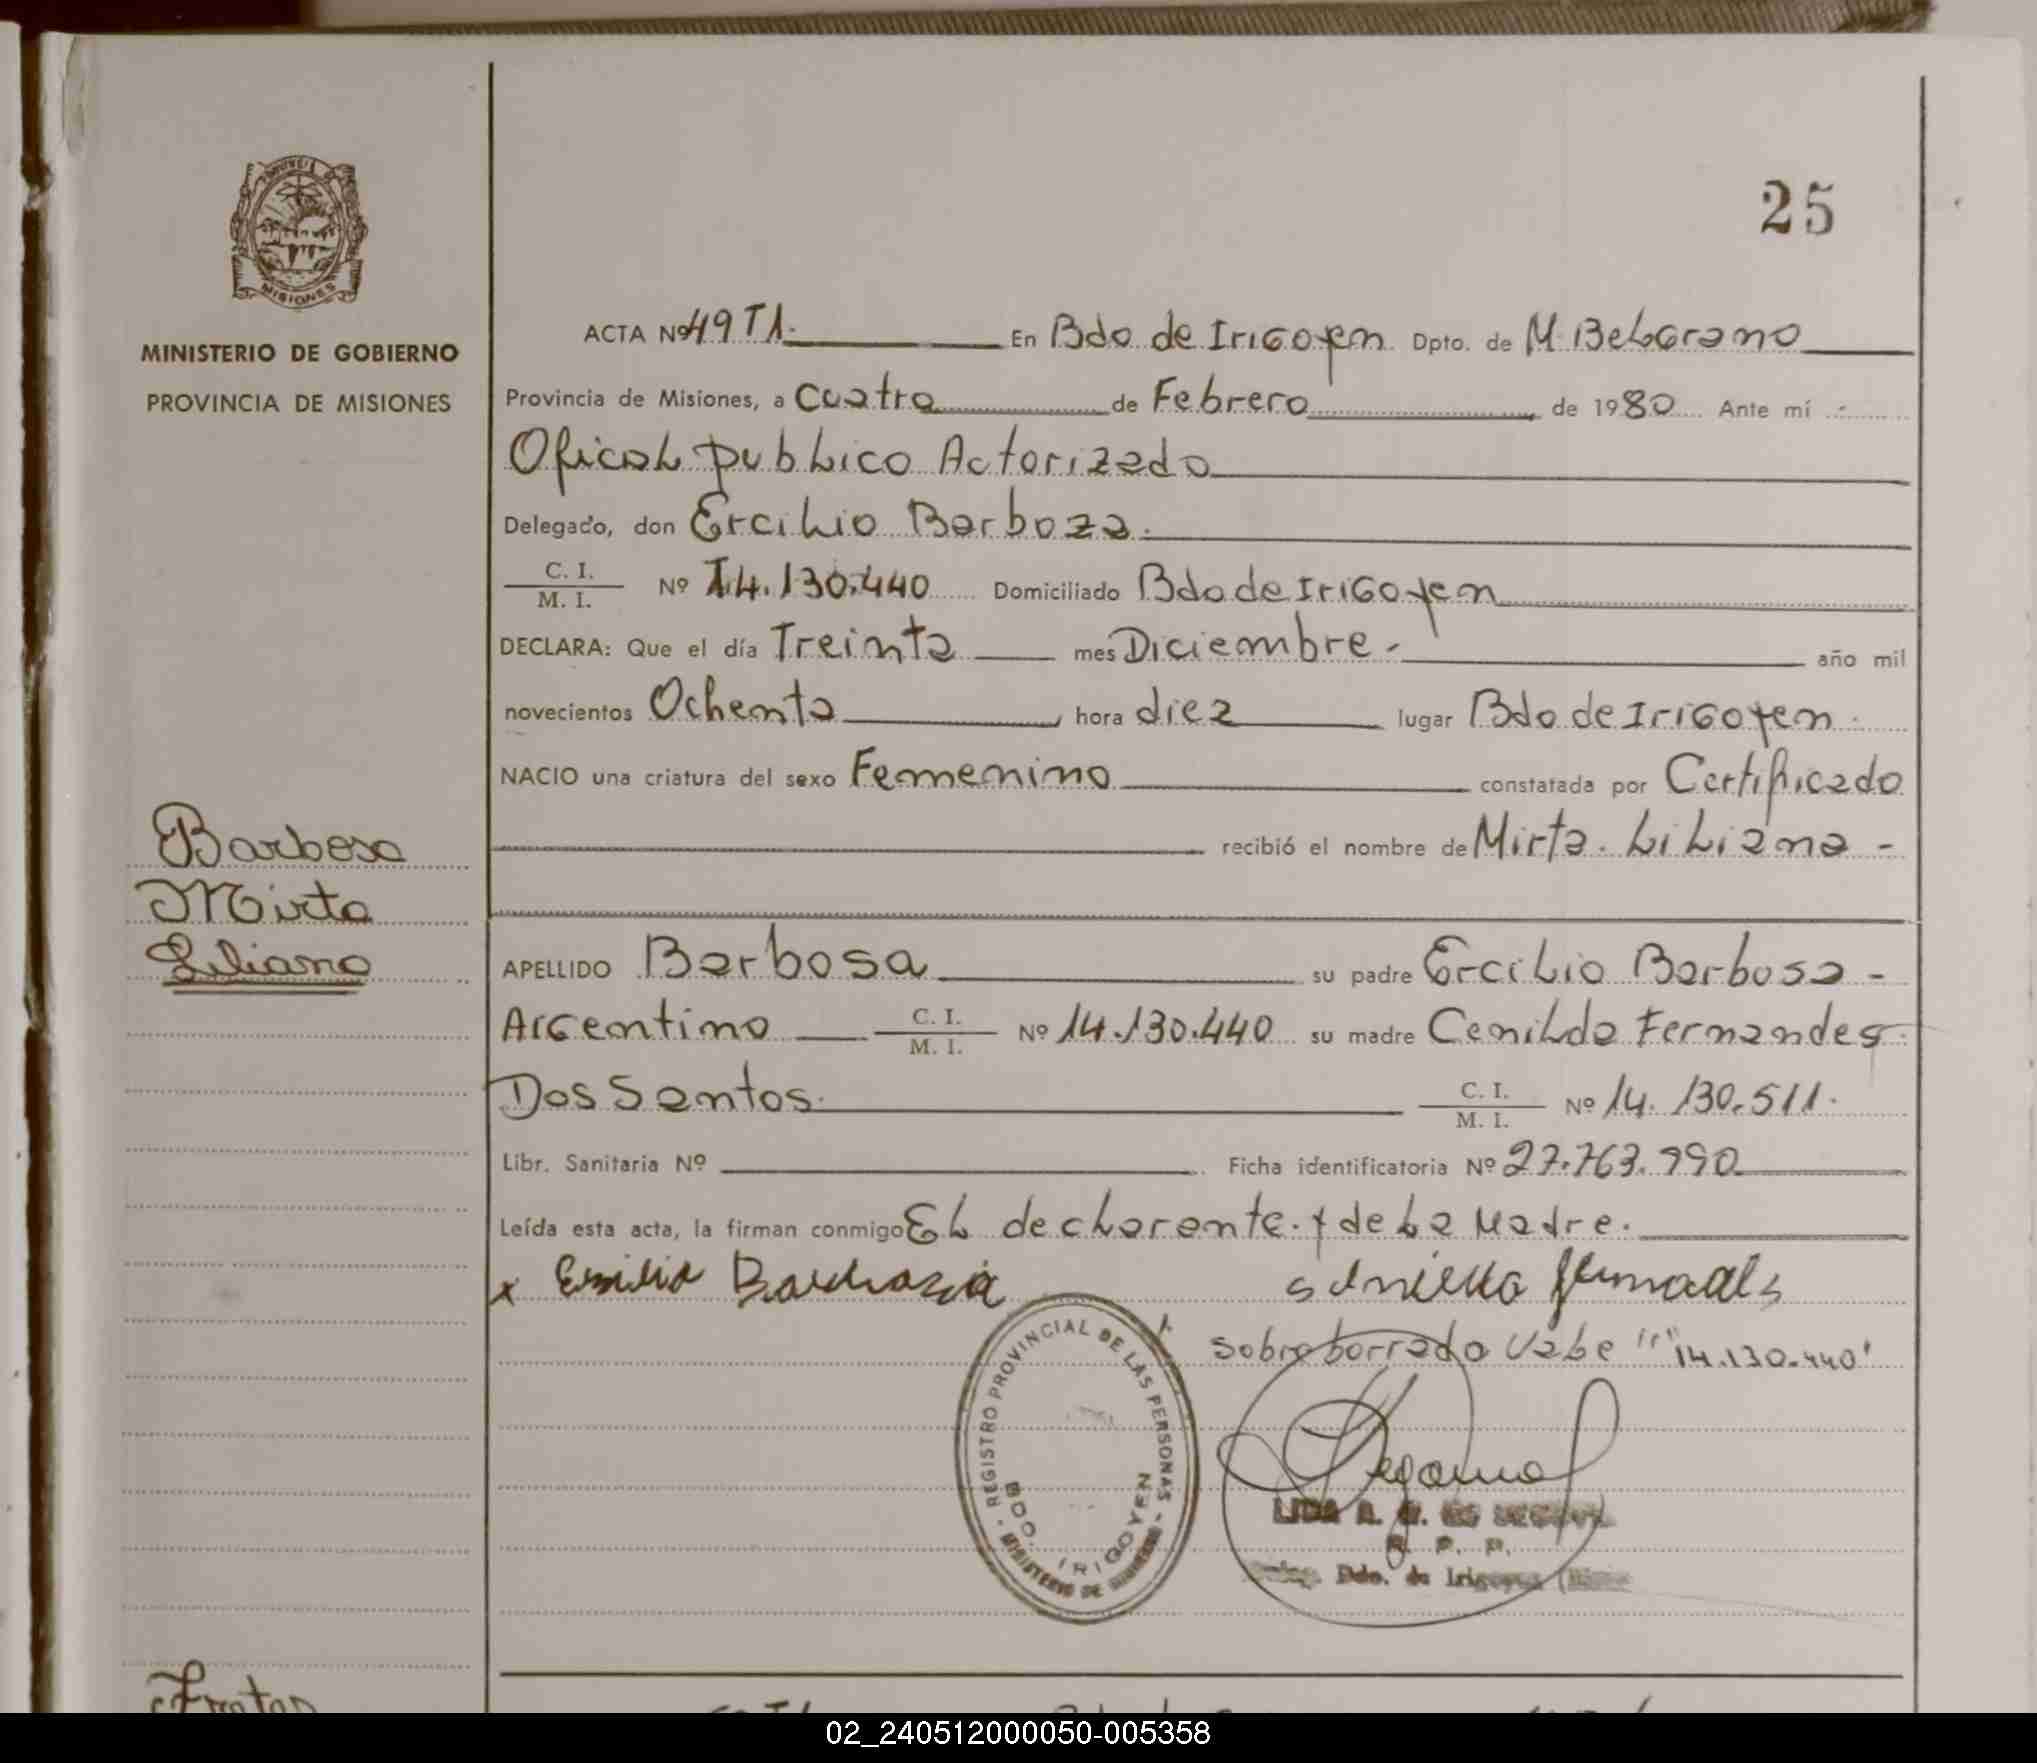 25
MISIONES
MINISTERIO DE GOBIERNO
PROVINCIA DE MISIONES
ACTA Nº 49 T1. En Bdo de Irigoyen Dpto. de M. Belgrano
Provincia de Misiones, a Cuatro de Febrero de 1980 Ante mí
Oficial publico Actorizado
Delegado, don Ercilio Barboza.
C. I. / M. I. Nº 14.130.440 Domiciliado Bdo de Irigoyen
DECLARA: Que el día Treinta mes Diciembre - año mil
novecientos Ochenta hora diez lugar Bdo de Irigoyen.
NACIO una criatura del sexo Femenino constatada por Certificado
recibió el nombre de Mirta. Liliana -
Barbosa
Mirta
Liliana
APELLIDO Barbosa su padre Ercilio Barbosa -
Argentino C. I. / M. I. Nº 14.130.440 su madre Cenilda Fernandes
Dos Santos. C. I. / M. I. Nº 14.130.511.
Libr. Sanitaria Nº Ficha identificatoria Nº 27.763.990
Leída esta acta, la firman conmigo El declarante. y de La Madre.
x
sobre borrado Vale "14.130.440"
REGISTRO PROVINCIAL DE LAS PERSONAS
BDO. IRIGOYEN
MINISTERIO DE GOBIERNO
LIDA
Bdo. de Irigoyen
02_240512000050-005358